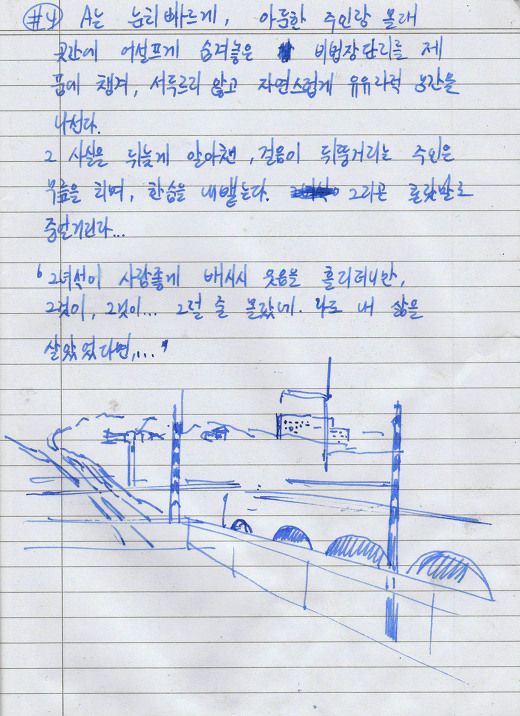 #4 A는 눈치빠르게, 아둔한 주인장 몰래
곳간에 어설프게 숨겨놓은 비법장단지를 제
품에 챙겨, 서두르지 않고 자연스럽게 유유라적 공간을
나선다.
그 사실을 뒤늦게 알아챈, 걸음이 뒤뚱거리는 주인은
무릎을 치며, 한숨을 내뱉는다. 그리곤 혼잣말로
중얼거린다...
"그녀석이 사람좋게 배시시 웃음을 흘리더니만,
그것이, 그것이... 그럴 줄 몰랐네. 나도 내 삶을
살았었다면,..."